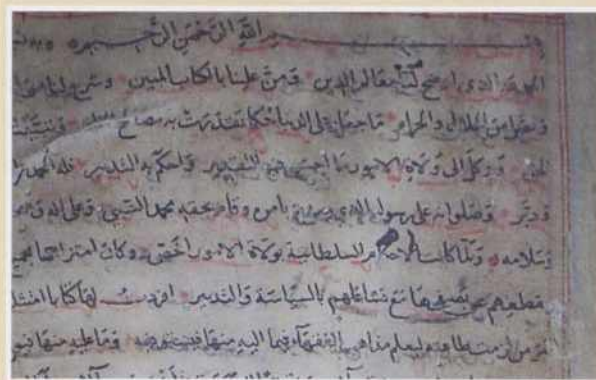 بسم الله الرحمن الرحيم
الحمد لله الذي اوضح لنا معالم الدين ومن علينا بالكتاب المبين وشرع لنا من
وفصل لنا من الحلال والحرام ما جعله على الدنيا حكما تقررت به مصالح وثبتت
الحق ووكل الى ولاة الامور ما احسن فيه التقدير واحكم به التدبير فله الحمد
ودبر وصلواته على رسوله الذي صدع بامره وقام بحقه محمد النبي وعلى اله
وسلامه ولما كانت الاحكام السلطانية بولاة الامور احق وكان امتزاجها
يقطعهم عن تصفحها مع تشاغلهم بالسياسة والتدبير افردت لها كتابا
امر من لزمت طاعته ليعلم مذاهب الفقهاء فيما اليه منها فيستوفيه وما عليه منها